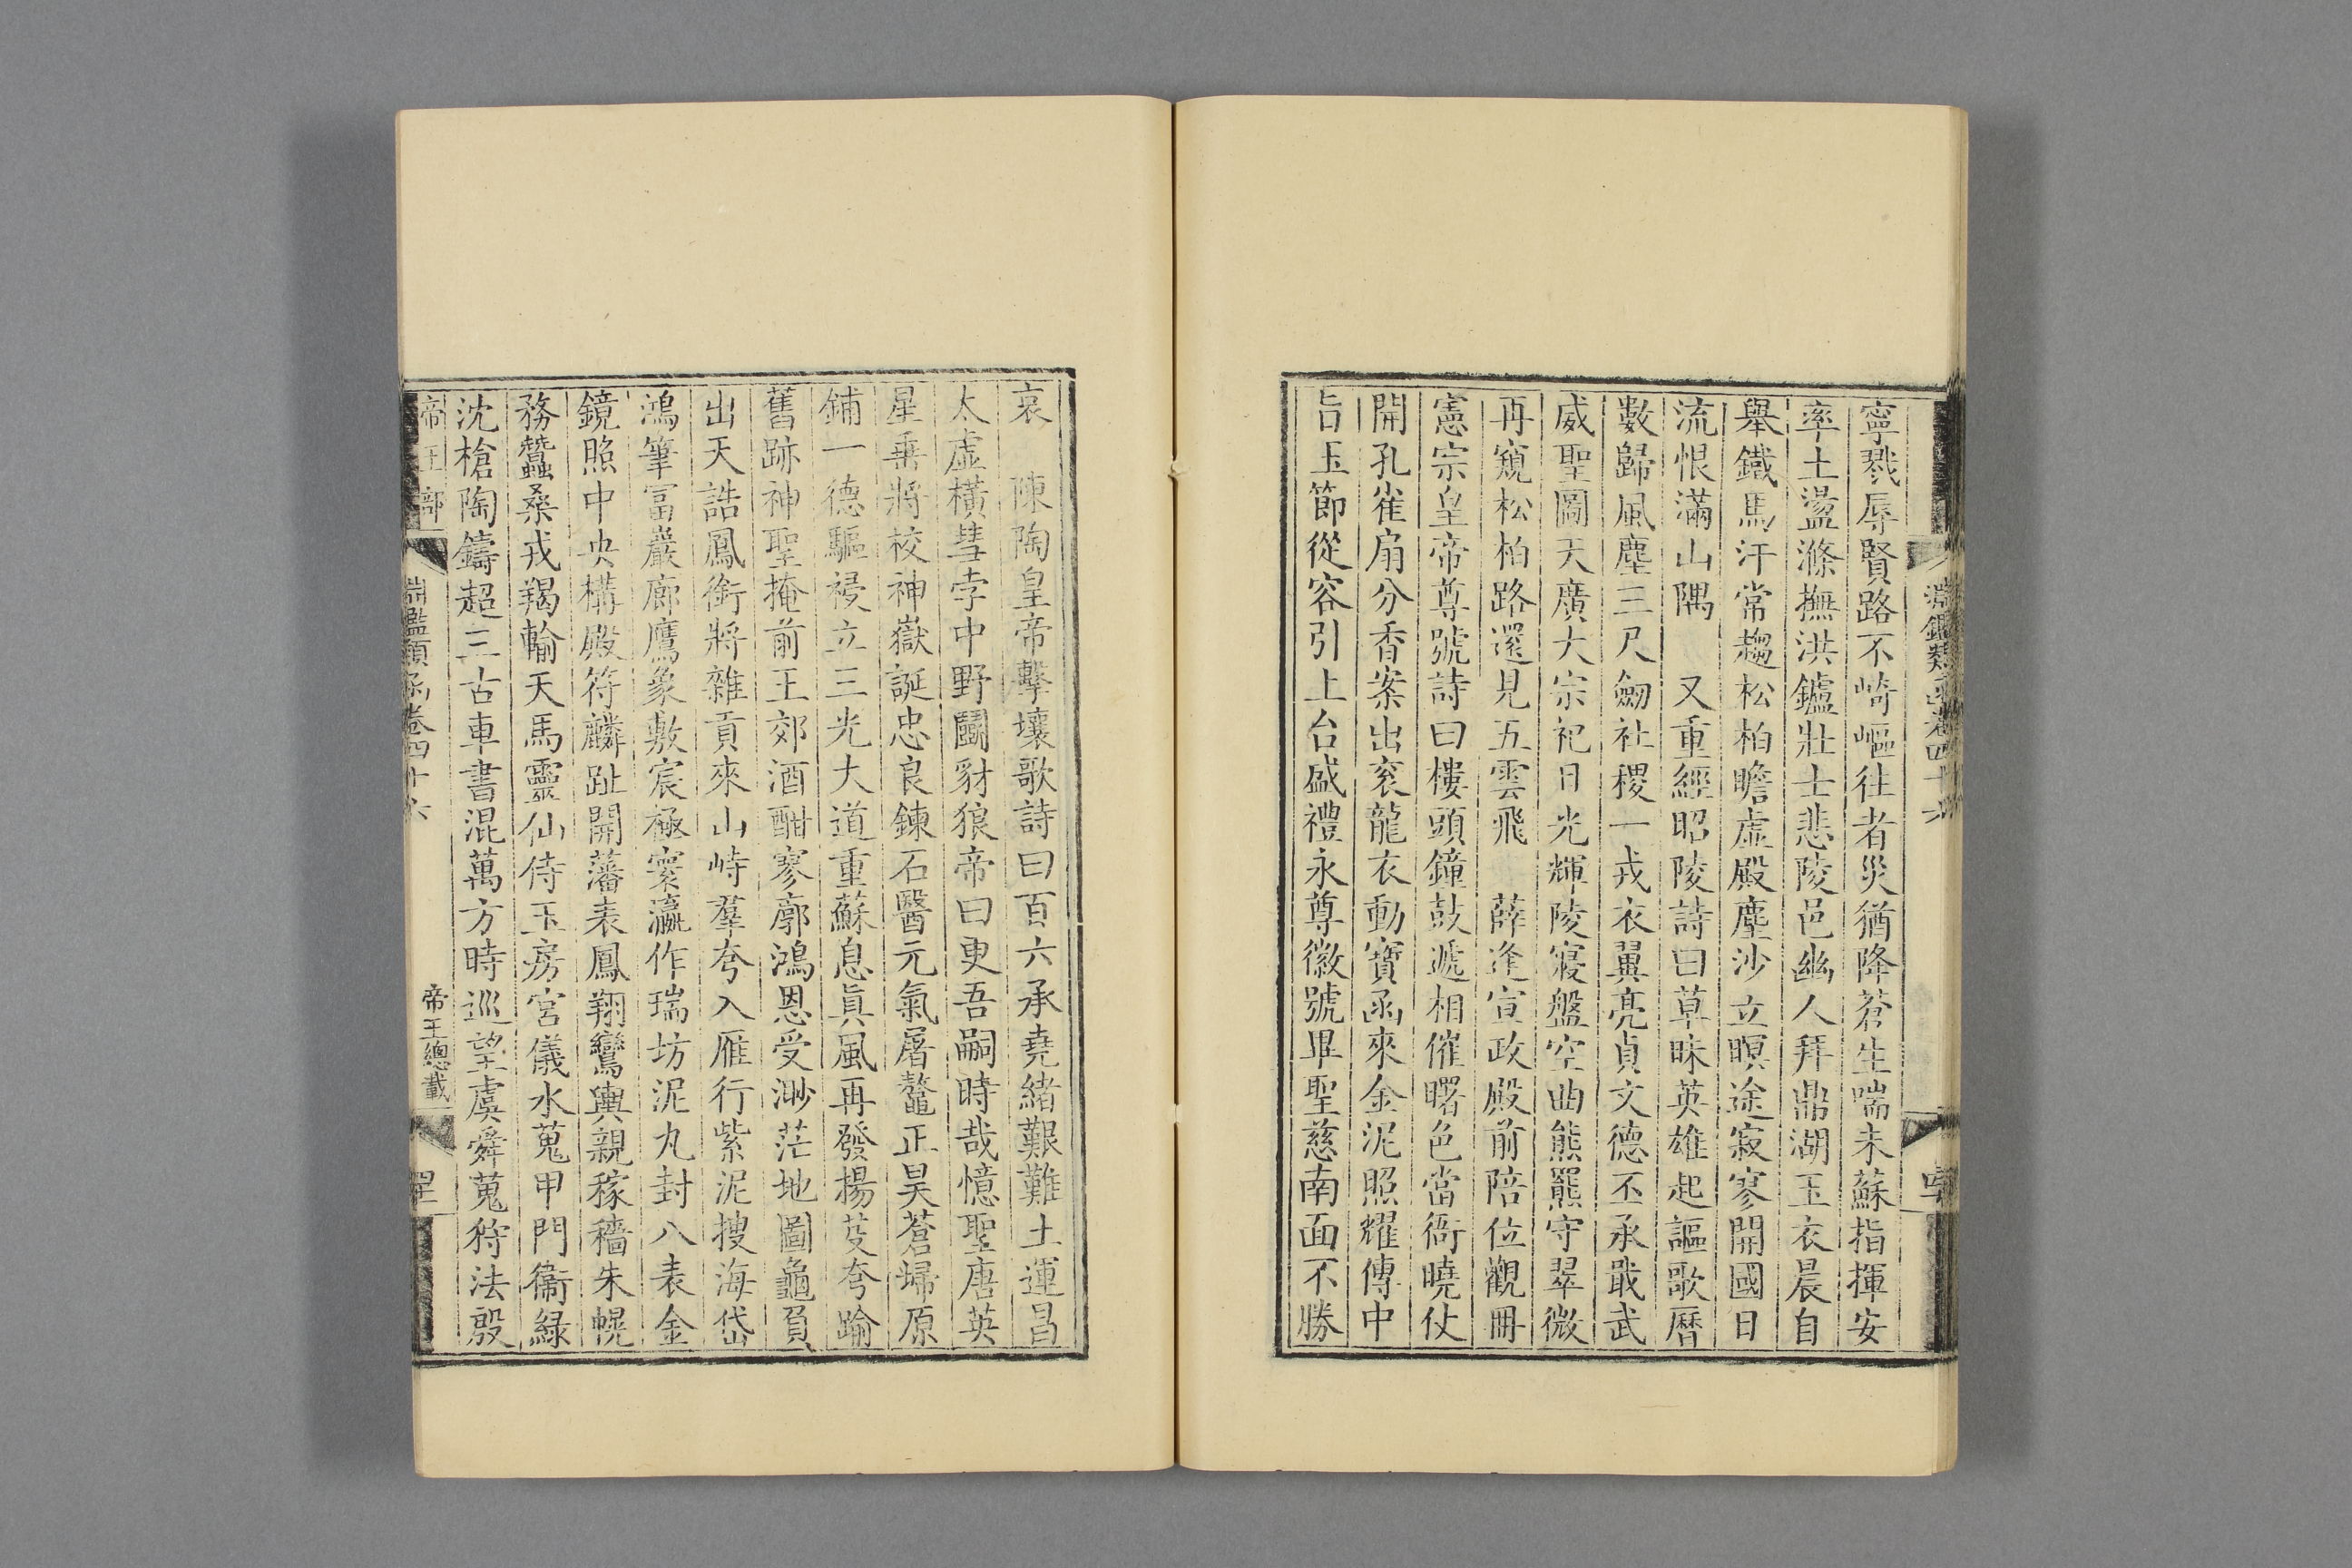 淵鑑類函卷四十六
寧戮辱賢路不崎嶇往者災猶降蒼生喘未蘇指揮安
率土盪滌撫洪鑪壯士悲陵邑幽人拜鼎湖玉衣晨自
舉鐵馬汗常趨松柏瞻虛殿塵沙立暝途寂寥開國日
流恨滿山隅　又重經昭陵詩曰草昧英雄起謳歌曆
數歸風塵三尺劒社稷一戎衣翼亮貞文德丕承戢武
威聖圖天廣大宗祀日光輝陵寢盤空曲熊羆守翠微
再窺松柏路還見五雲飛　薛逢宣政殿前陪位觀冊
憲宗皇帝尊號詩曰樓頭鐘鼓遞相催曙色當衙曉仗
開孔雀扇分香案出衮龍衣動寶函來金泥照耀傳中
旨玉節從容引上台盛禮永尊徽號畢聖慈南面不勝
哀　陳陶皇帝擊壤歌詩曰百六承堯緒艱難土運昌
太虛橫彗孛中野鬬豺狼帝曰更吾嗣時哉憶聖唐英
星垂將校神嶽誕忠良鍊石醫元氣屠鼇正昊蒼埽原
鋪一德驅祲立三光大道重蘇息眞風再發揚芟夸踰
舊跡神聖掩前王郊酒酣寥廓鴻恩受渺茫地圖龜負
出天誥鳳銜將雜貢來山峙羣夸入雁行紫泥搜海岱
鴻筆富巖廊鷹象敷宸極寰瀛作瑞坊泥丸封八表金
鏡照中央構殿符麟趾開藩表鳳翔鸞輿親稼穡朱幌
務蠶桑戎羯輸天馬靈仙侍玉房宮儀水蒐甲門衞綠
沈槍陶鑄超三古車書混萬方時巡望虞舜蒐狩法殷
帝王部　淵鑑類函卷四十六　帝王總載